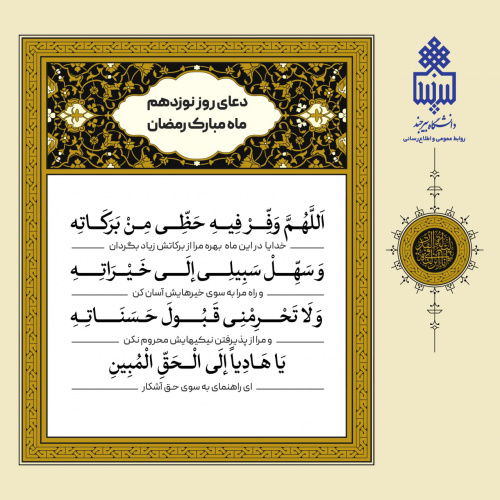 دعای روز نوزدهم
ماه مبارک رمضان
اَللَّهُمَّ وَفِّرْ فِيهِ حَظِّي مِنْ بَرَكَاتِهِ
خدایا در این ماه بهره مرا از برکاتش زیاد بگردان
وَسَهِّلْ سَبِيلِي إِلَى خَيْرَاتِهِ
و راه مرا به سوی خیرهایش آسان کن
وَلَا تَحْرِمْنِي قَبُولَ حَسَنَاتِهِ
و مرا از پذیرفتن نیکیهایش محروم نکن
يَا هَادِياً إِلَى الْحَقِّ الْمُبِينِ
ای راهنمای به سوی حق آشکار
دانشگاه بیرجند
روابط عمومی و اطلاع‌رسانی